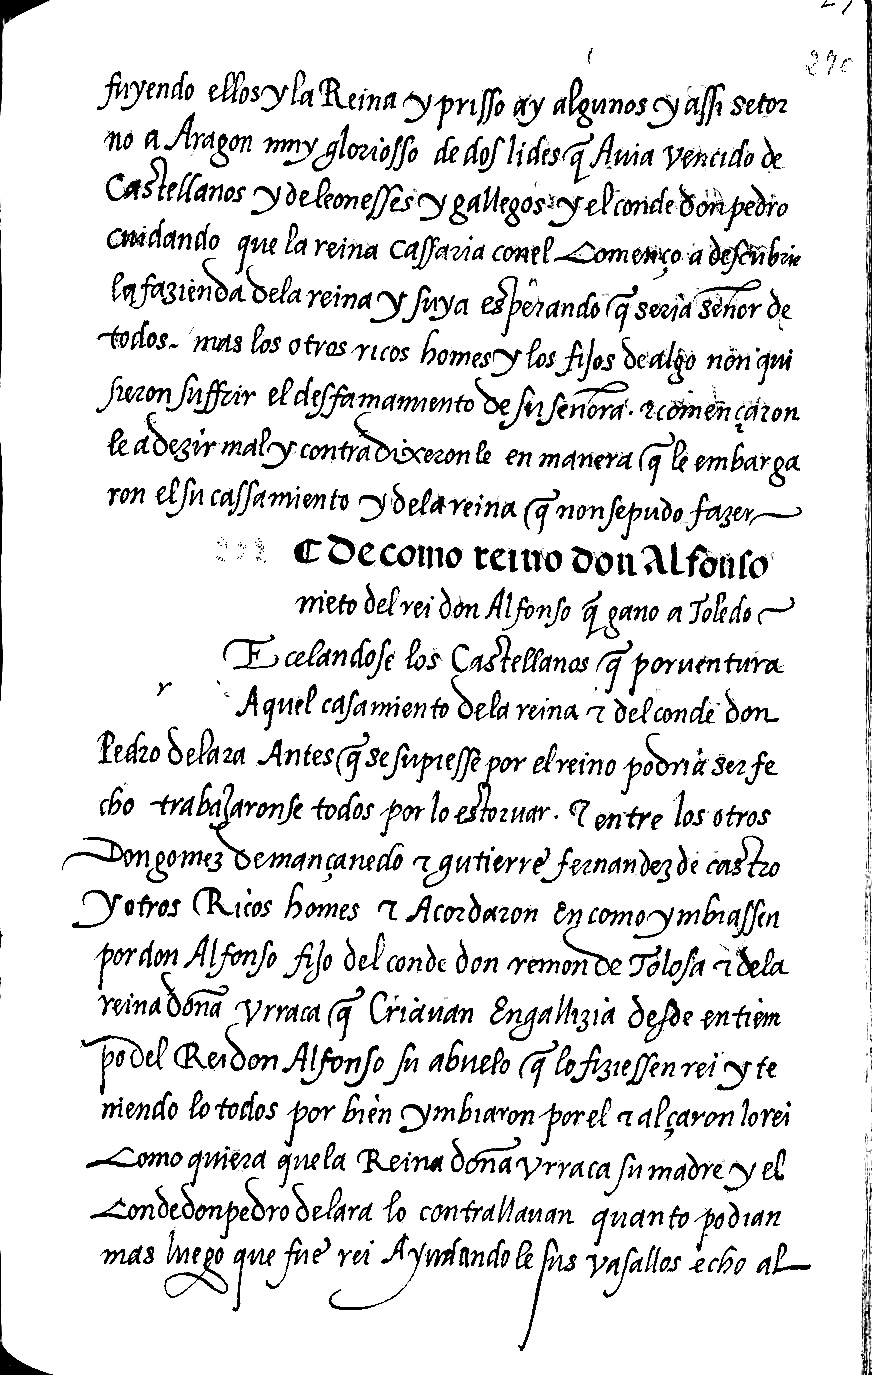 270
fuyendo ellos y la Reina y prisso ay algunos y assi setor
no a Aragon muy gloriosso de dos lides q̃ Auia vencido de
Castellanos y de leonesses y gallegos: y el conde don pedro
cuidando que la reina cassaria conel Començo a descubrir
la fazienda dela reina y suya esperando q̃ seria señor de
todos. mas los otros ricos homes y los fijos de algo non qui
sieron suffrir el desfamamiento de su señora. ⁊ començaron
le a dezir mal y contradixeronle en manera q̃ le embarga
ron el su cassamiento y dela reina q̃ non sepudo fazer
¶ De como reino don Alfonso
nieto del rei don Alfonso q̃ gano a Toledo
r
E celandose los Castellanos q̃ por uentura
Aquel casamiento dela reina ⁊ del conde don
Pedro delara Antes q̃ se supiesse por el reino podria ser fe
cho trabajaronse todos por lo estoruar. ⁊ entre los otros
Don gomez demançanedo ⁊ gutierre fernandez de castro
y otros Ricos homes ⁊ Acordaron En como ymbiassen
por don Alfonso fijo del conde don remon de Tolosa ⁊ dela
reina doña vrraca q̃ Criauan En gallizia desde en tiem
po del Rei don Alfonso su abuelo q̃ lo fiziessen rei y te
niendo lo todos por bien ymbiaron por el ⁊ alçaron lo rei
Como quiera que la Reina doña vrraca su madre y el
Conde don pedro delara lo contrallauan quanto podian
mas luego que fue rei Ayudandole sus vasallos echo al